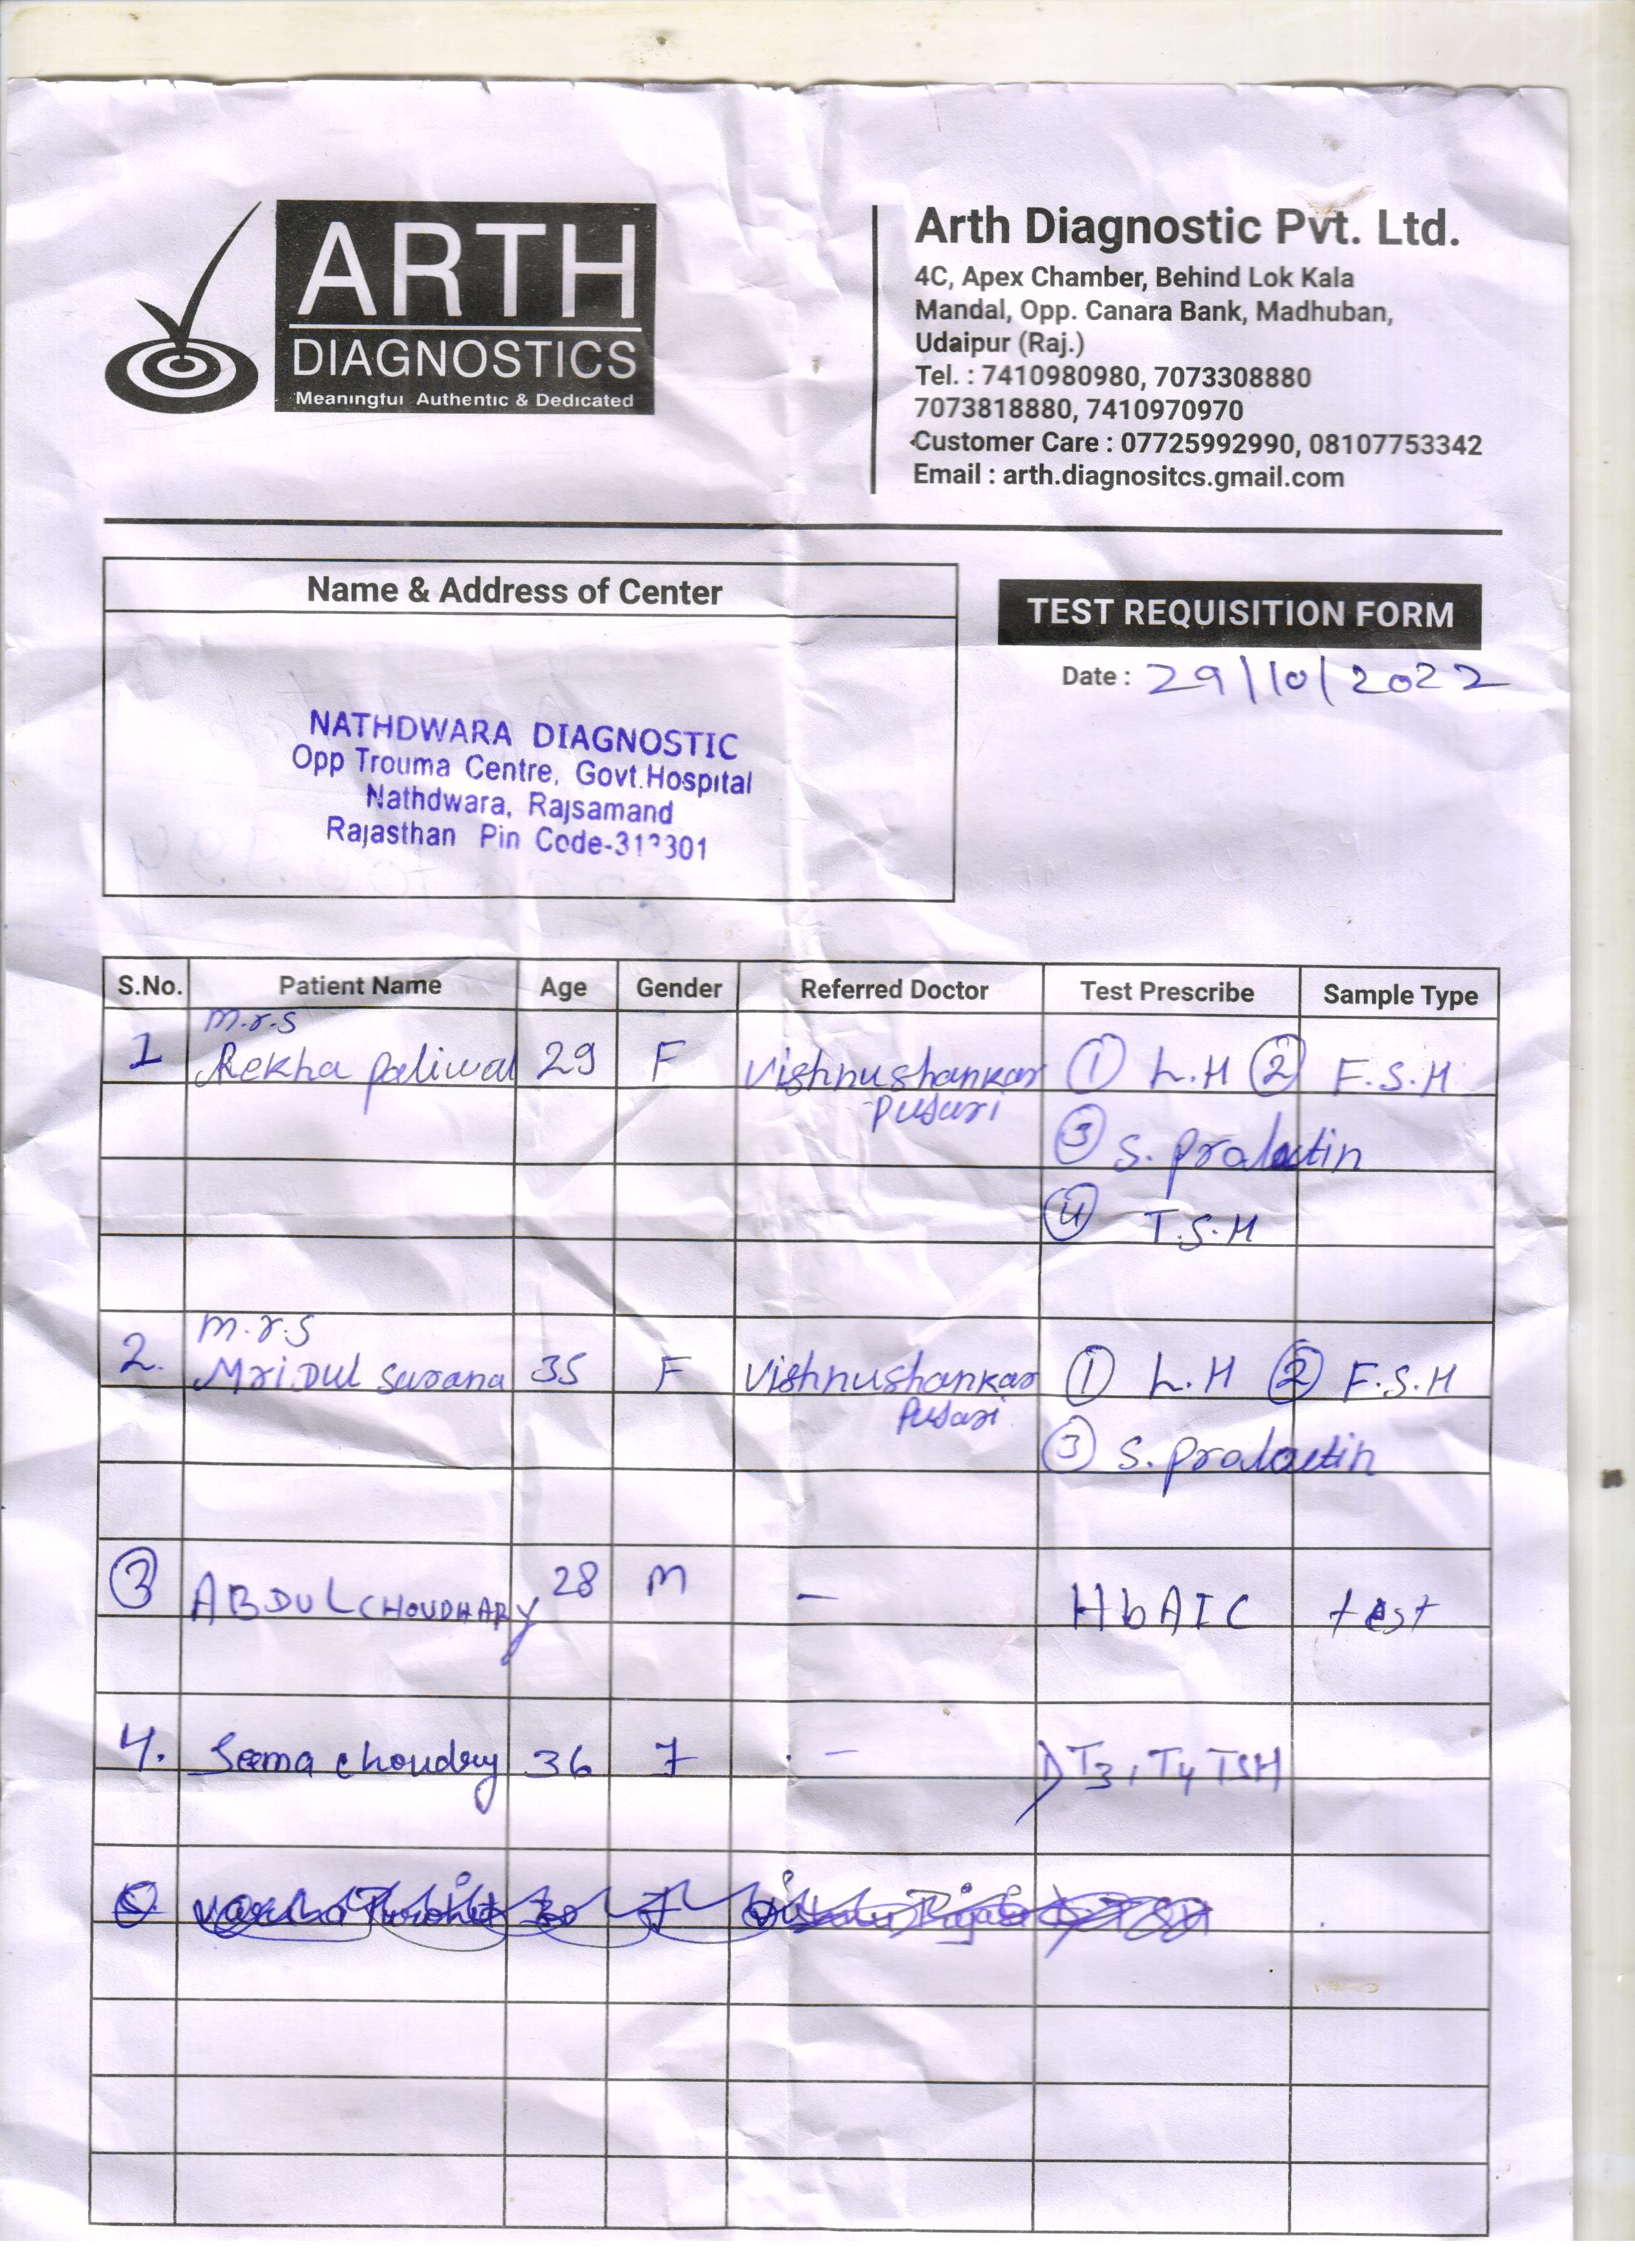 ARTH
DIAGNOSTICS
Meaningful Authentic & Dedicated
Arth Diagnostic Pvt. Ltd.
4C, Apex Chamber, Behind Lok Kala
Mandal, Opp. Canara Bank, Madhuban,
Udaipur (Raj.)
Tel. : 7410980980, 7073308880
7073818880, 7410970970
Customer Care : 07725992990, 08107753342
Email : arth.diagnositcs.gmail.com
Name & Address of Center
TEST REQUISITION FORM
Date : 29/10/2022
NATHDWARA DIAGNOSTIC
Opp Trouma Centre, Govt.Hospital
Nathdwara, Rajsamand
Rajasthan Pin Code-
S.No. Patient Name Age Gender Referred Doctor Test Prescribe Sample Type
m.r.s
1 Rekha paliwal 29 F Vishnushankar ① L.H ② F.S.H
Pujari
③ S. pralactin
④ T.S.H
m.r.s
2. Mridul surana 35 F Vishnushankar ① L.H ② F.S.H
Pujari
③ S. pralactin
③ ABDUL CHOUDHARY 28 M - HbA1C test
4. Seema choudry 36 F - 1) T3, T4 TSH